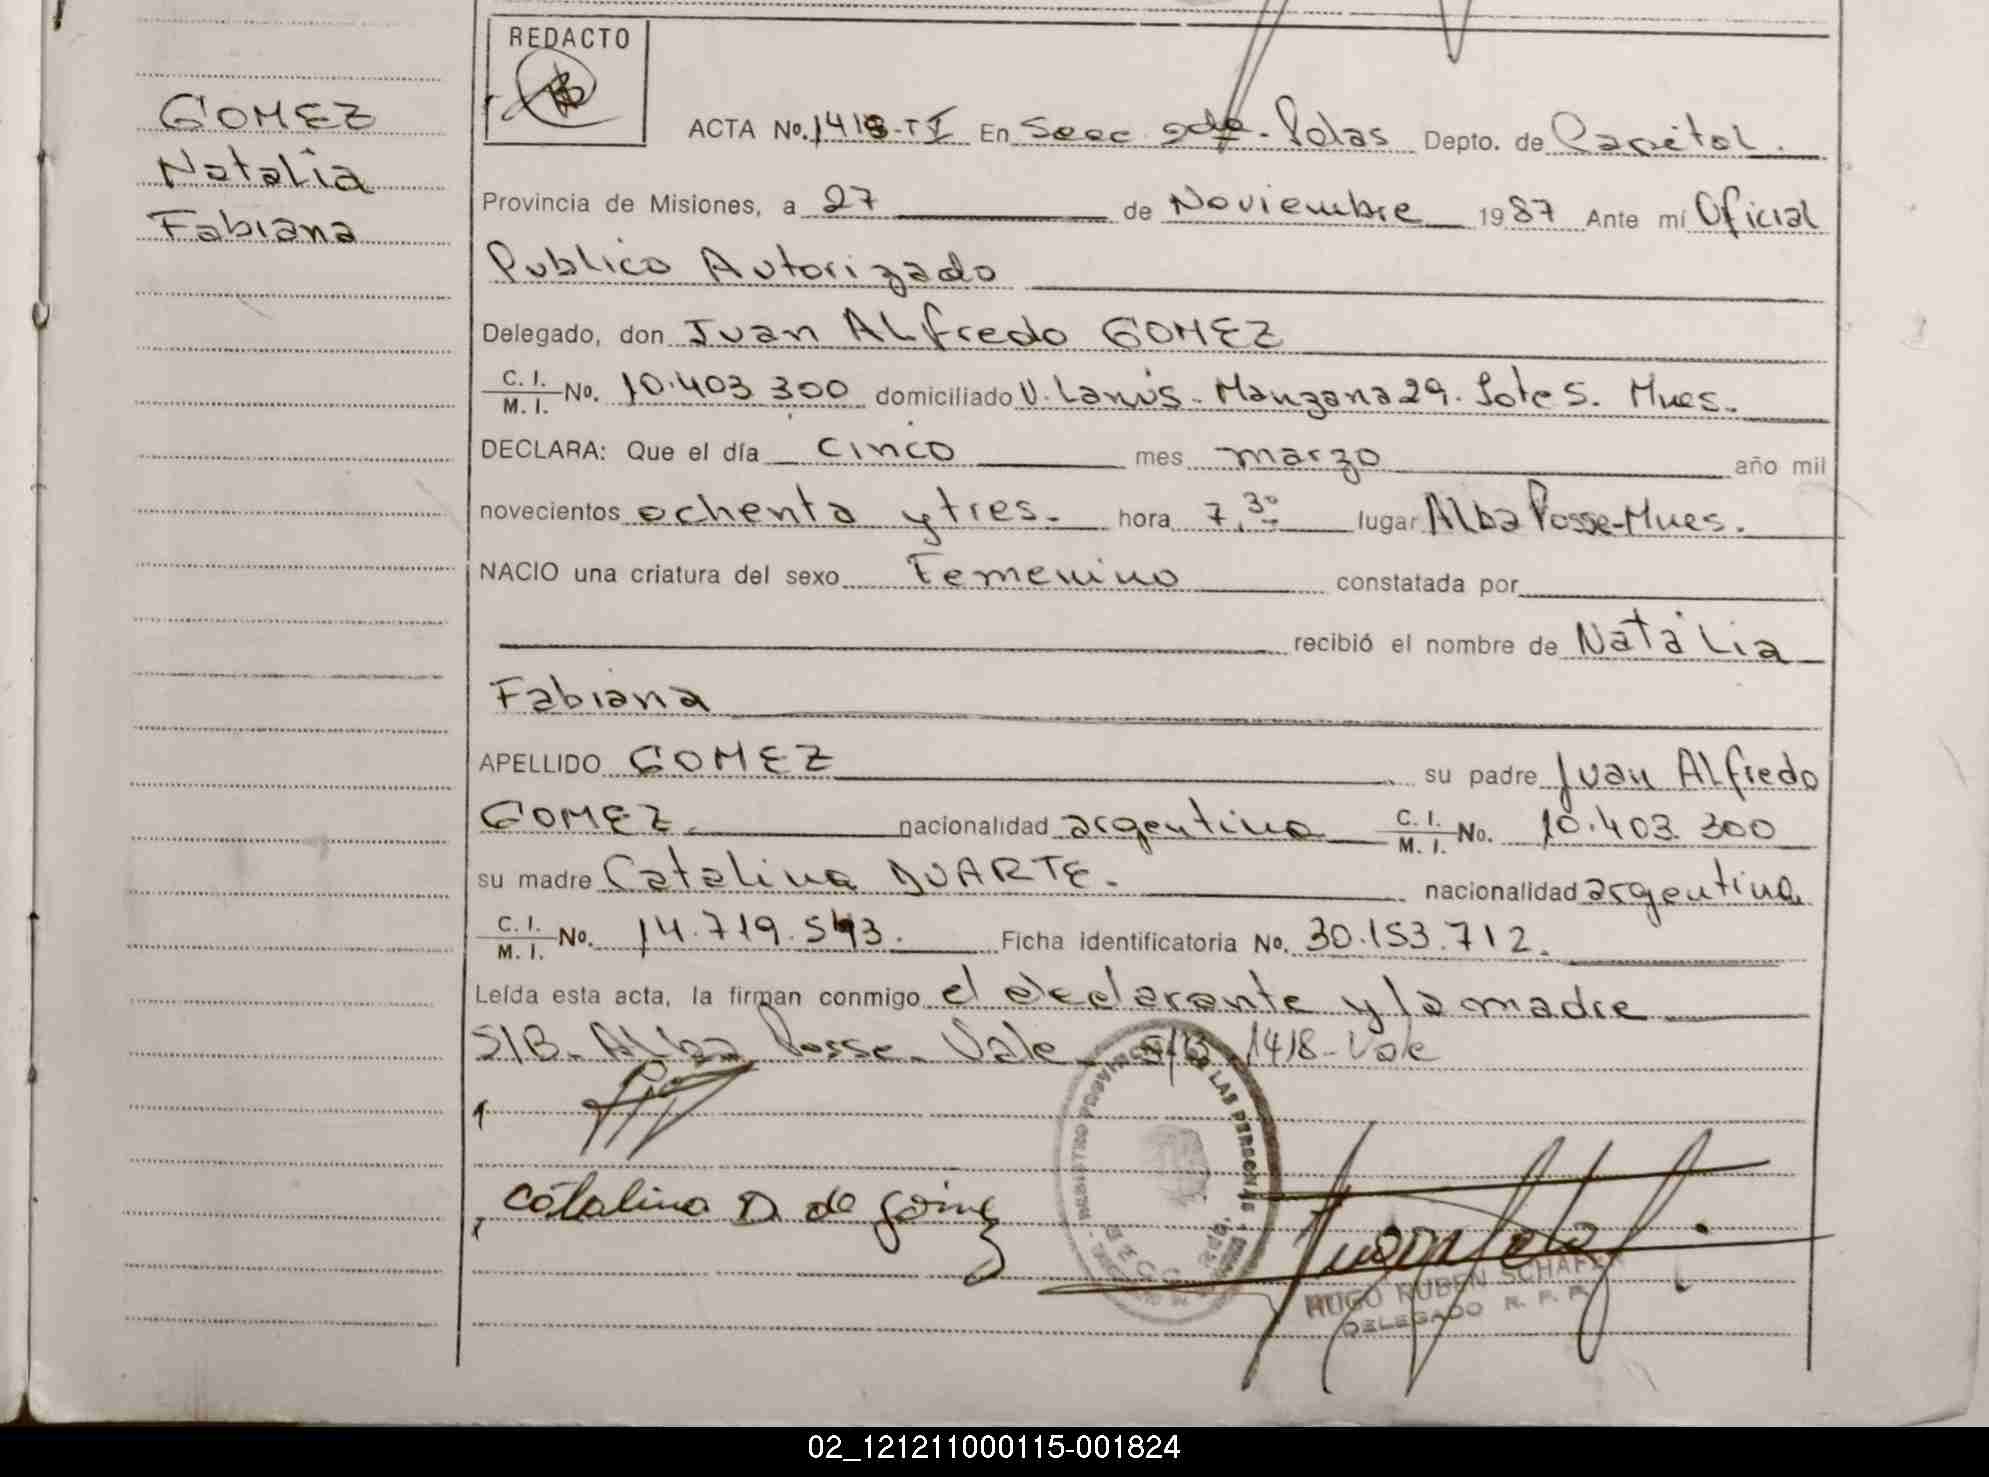 REDACTO
GOMEZ
Natalia
Fabiana
ACTA No. 1418-TI En Secc 2da - Pdas Depto. de Capital.
Provincia de Misiones, a 27 de Noviembre 1987 Ante mí Oficial
Publico Autorizado
Delegado, don Juan Alfredo GOMEZ
C. I.
M. I. No. 10.403 300 domiciliado V. Lanús - Manzana 29. Lote 5. Mnes.
DECLARA: Que el día cinco mes marzo año mil
novecientos ochenta y tres. hora 7,30 lugar Alba Posse-Mnes.
NACIO una criatura del sexo Femenino constatada por
recibió el nombre de Natalia
Fabiana
APELLIDO GOMEZ su padre Juan Alfredo
GOMEZ nacionalidad argentina C. I. M. I. No. 10.403.300
su madre Catalina DUARTE. nacionalidad argentina
C. I.
M. I. No. 14.719.543. Ficha identificatoria No. 30.153.712.
Leída esta acta, la firman conmigo el declarante y la madre
S/B. Alba Posse. Vale S/B 1418 - Vale
Catalina D. de Gomez
HUGO RUBEN SCHAFER
DELEGADO R. P. P.
02_121211000115-001824